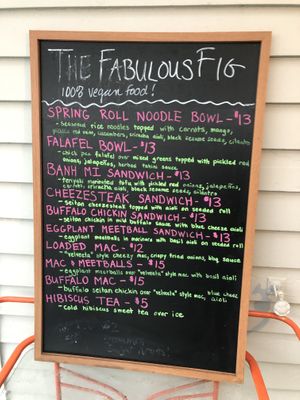 THE FABULOUS FIG
100% vegan food!
SPRING ROLL NOODLE BOWL - $13
- seasoned rice noodles topped with carrots, mango,
pickled red onion, cucumbers, sriracha aioli, black sesame seeds, cilantro
FALAFEL BOWL - $13
- chick pea falafel over mixed greens topped with pickled red
onions, jalapeños, herbed tahini sauce
BANH MI SANDWICH - $13
- teriyaki marinated tofu with pickled red onions, jalapeños,
carrots, sriracha aioli, black sesame seeds, cilantro
CHEEZESTEAK SANDWICH - $13
- seitan cheezesteak topped with aioli on seeded roll
BUFFALO CHICKIN SANDWICH - $13
- seitan chickin in mild buffalo sauce with blue cheeze aioli
EGGPLANT MEETBALL SANDWICH - $13
- eggplant meetballs in marinara with basil aioli on seeded roll
LOADED MAC - $12
- "velveeta" style cheezy mac, crispy fried onions, bbq sauce
MAC & MEETBALLS - $15
- eggplant meetballs over "velveeta" style mac with basil aioli
BUFFALO MAC - $15
- buffalo seitan chickin over "velveeta" style mac, blue cheeze
aioli
HIBISCUS TEA - $5
- cold hibiscus sweet tea over ice